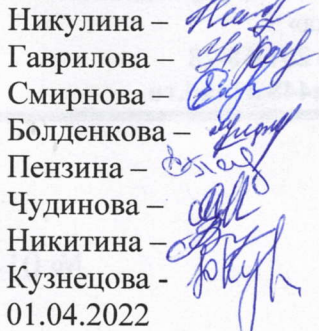 Никулина –
Гаврилова –
Смирнова –
Болденкова –
Пензина –
Чудинова –
Никитина –
Кузнецова -
01.04.2022